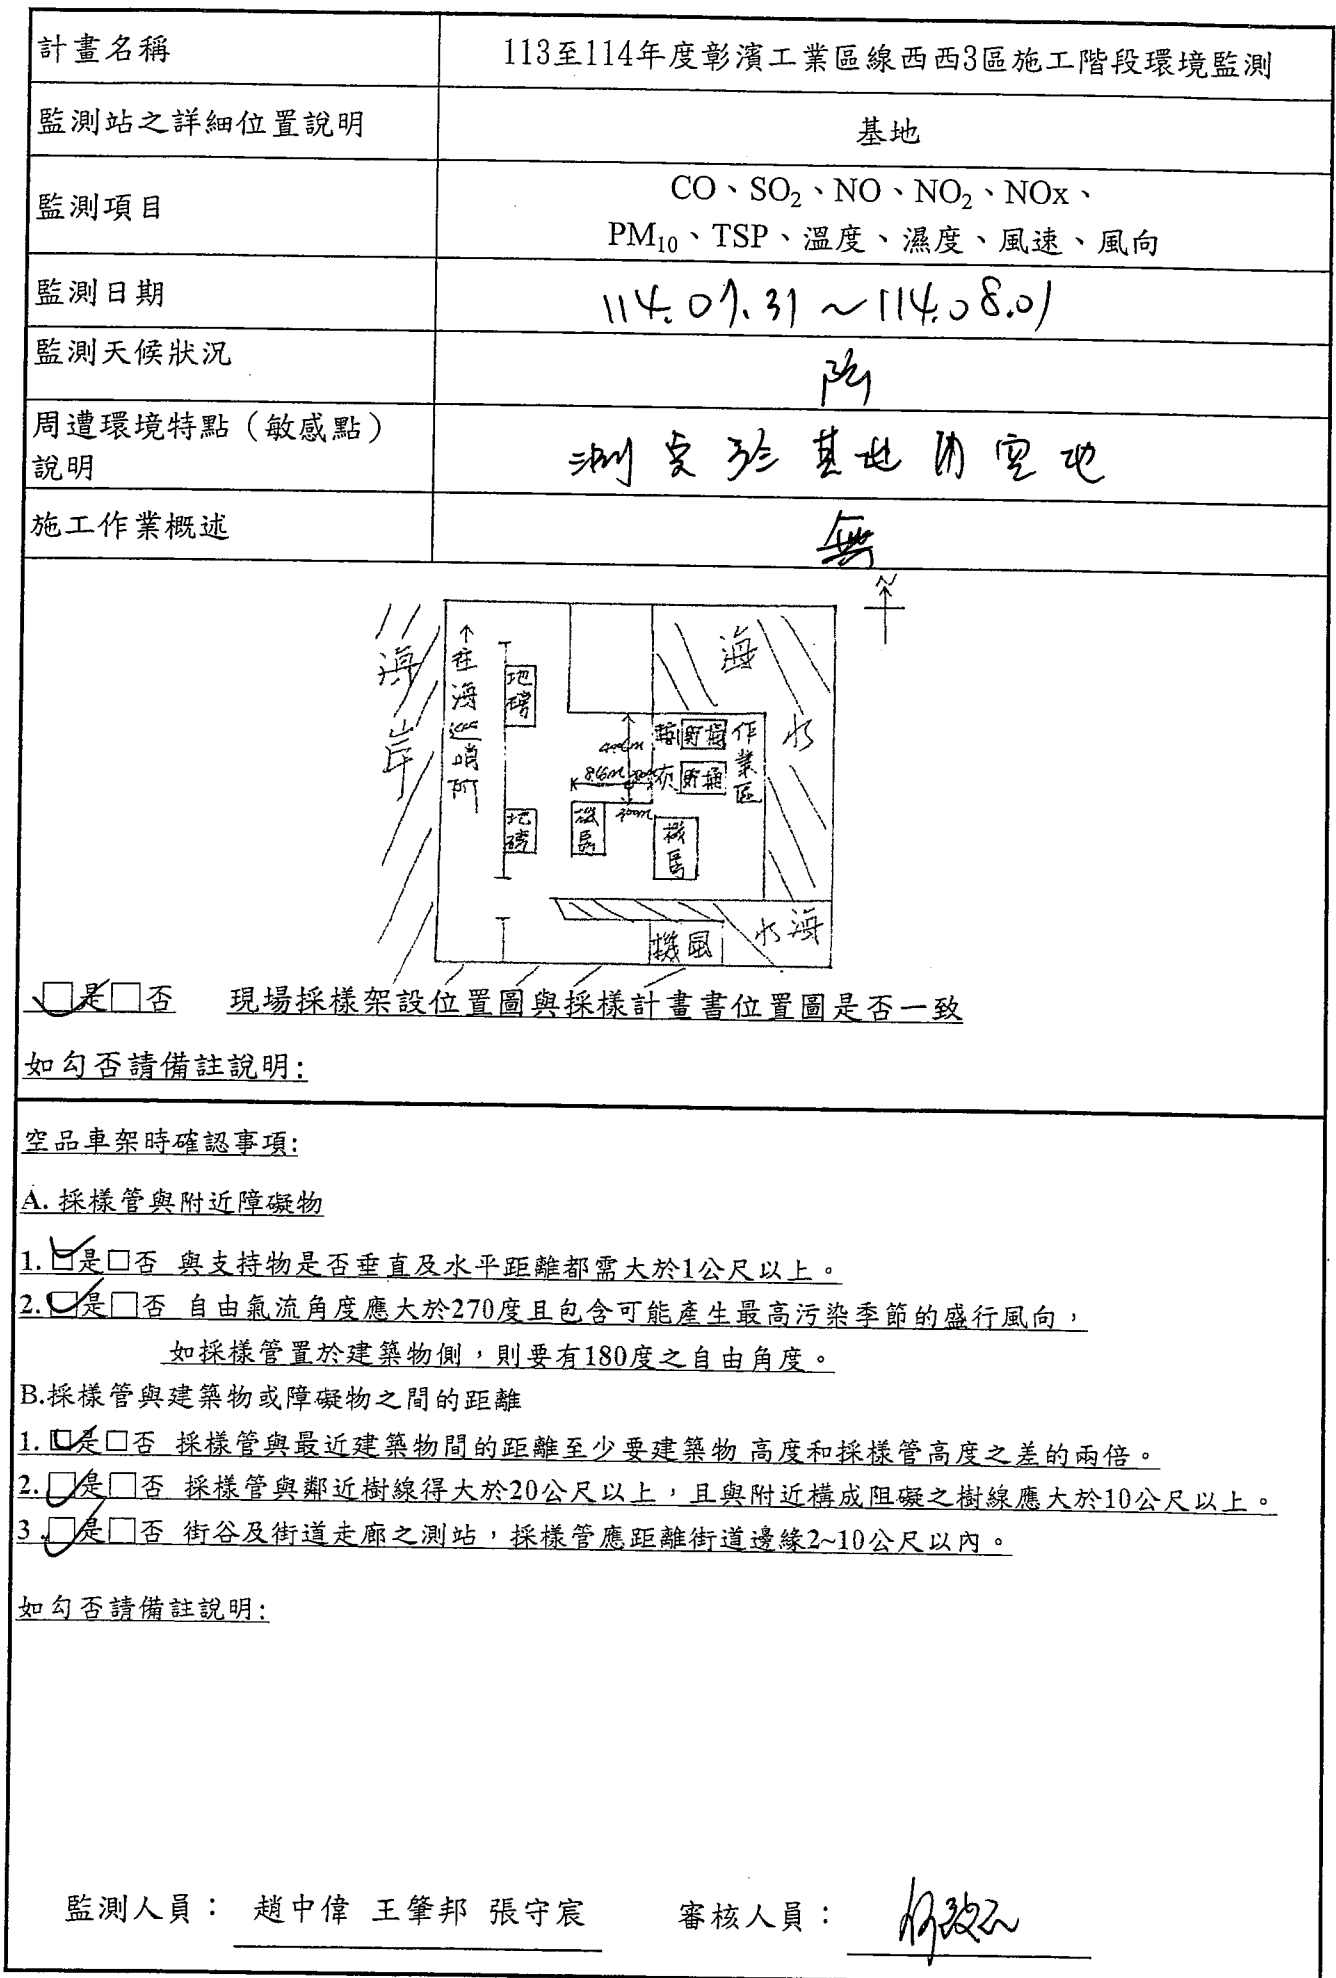 計畫名稱 113至114年度彰濱工業區線西西3區施工階段環境監測
監測站之詳細位置說明 基地
監測項目 CO、SO₂、NO、NO₂、NOx、
PM₁₀、TSP、溫度、濕度、風速、風向
監測日期 114.07.31～114.08.01
監測天候狀況 陰
周遭環境特點（敏感點）
說明 測點於基地內空地
施工作業概述 無
N
海岸
↑往海巡哨所
地磅
地磅
海水
作業區
貯桶
貯桶
機房
機房
機風
海水
是否 現場採樣架設位置圖與採樣計畫書位置圖是否一致
如勾否請備註說明:
空品車架時確認事項:
A. 採樣管與附近障礙物
1. 是□否 與支持物是否垂直及水平距離都需大於1公尺以上。
2. 是□否 自由氣流角度應大於270度且包含可能產生最高污染季節的盛行風向，
如採樣管置於建築物側，則要有180度之自由角度。
B.採樣管與建築物或障礙物之間的距離
1. 是□否 採樣管與最近建築物間的距離至少要建築物 高度和採樣管高度之差的兩倍。
2. 是□否 採樣管與鄰近樹線得大於20公尺以上，且與附近構成阻礙之樹線應大於10公尺以上。
3. 是□否 街谷及街道走廊之測站，採樣管應距離街道邊緣2~10公尺以內。
如勾否請備註說明:
監測人員： 趙中偉 王肇邦 張守宸 審核人員：